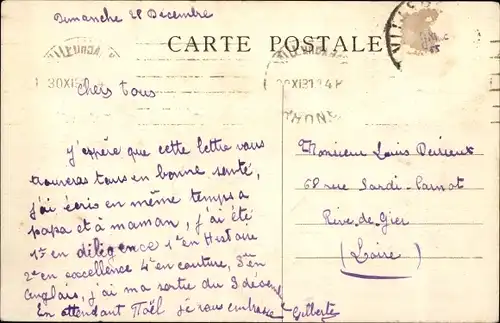 Dimanche 28 Décembre
CARTE POSTALE
Chers tous
J'espère que cette lettre vous
trouveras tous en bonne santé,
j'ai écris en même temps a
papa et à maman, j'ai été
1re en diligence 1re en Histoire
2me en excellence 4e en couture, 3me en
anglais, j'ai ma sortie du 3
En attendant Noël je vous embrasse Gilberte
Monsieur Louis
68 rue Sardi-Carnot
Rive-de-Gier
(Loire)